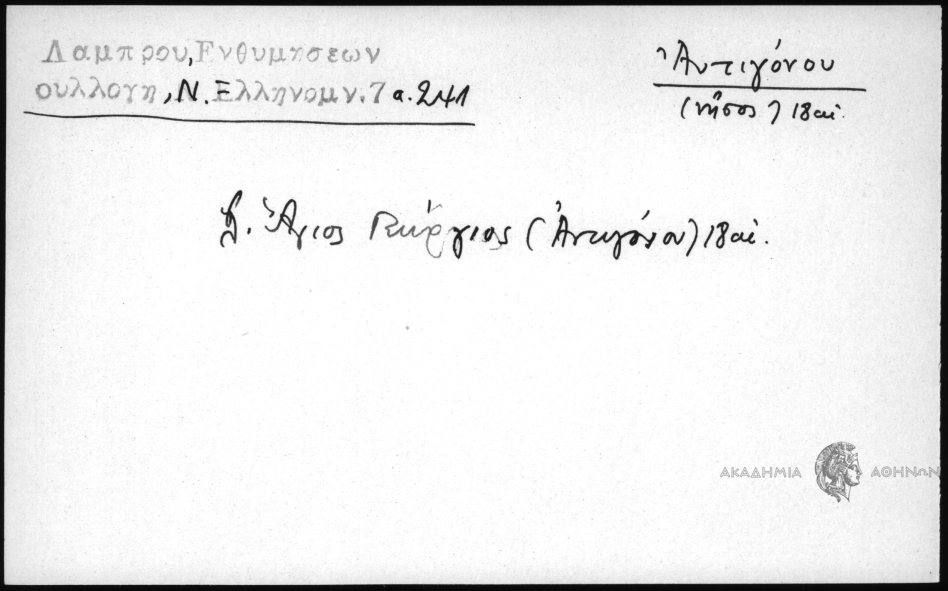 Λαμπρου, Ενθυμησεων
συλλογη, Ν. Ελληνομν. 7 α. 241
Ἀντιγόνου
(νῆσος) 18 αἰ.
Ἅγιος Γεώργιος (Ἀντιγόνου) 18 αἰ.
ΑΚΑΔΗΜΙΑ ΑΘΗΝΩΝ